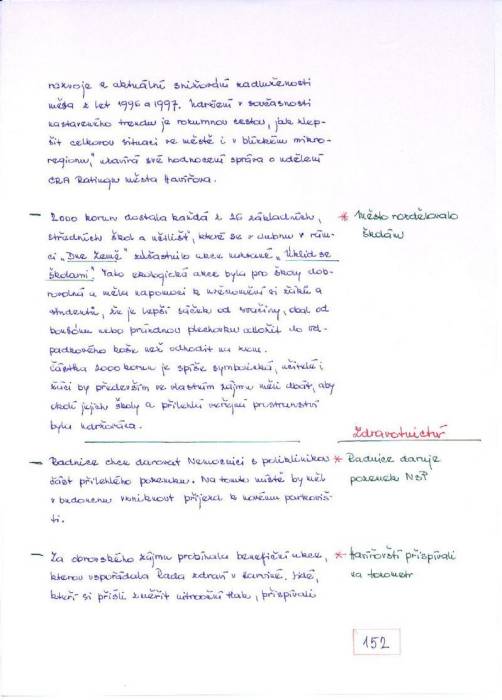 rozvoje a aktuální snižování zadluženosti
města z let 1996 a 1997. Navíc v současnosti
nastaveného trendu je rozumnou cestou, jak zlep-
šit celkovou situaci ve městě i v blízkém mikro-
regionu," uzavírá své hodnocení zpráva o udělení
CRA Ratingu města Havířova.
- 2000 korun dostala každá z 26 základních, * Město rozdělovalo
středních škol a učilišť, které se v dubnu v rám- školám
ci „Dne Země" zúčastnilo akce nazvané „Uklid se
školami". Tato ekologická akce byla pro školy dob-
rovolná a měla napomoci k uvědomění si žáků a
studentů, že je lepší sáček od svačiny, obal od
bonbónu nebo prázdnou plechovku odložit do od-
padkového koše než odhodit na zem.
Částka 2000 korun je spíše symbolická, učitelé i
žáci by především ve vlastním zájmu měli dbát, aby
okolí jejich školy a přilehlá veřejná prostranství
byla udržována.
Zdravotnictví
- Radnice chce darovat Nemocnici s poliklinikou * Radnice daruje
část přilehlého pozemku. Na tomto místě by měl pozemek NsP
v budoucnu vzniknout příjezd k novému parkoviš-
ti.
- Za obrovského zájmu probíhala benefiční akce, * Havířovští přispívali
kterou uspořádala Rada zdraví v Karviné. Lidé, na tonometr
kteří si přišli změřit nitrooční tlak, přispívali
152